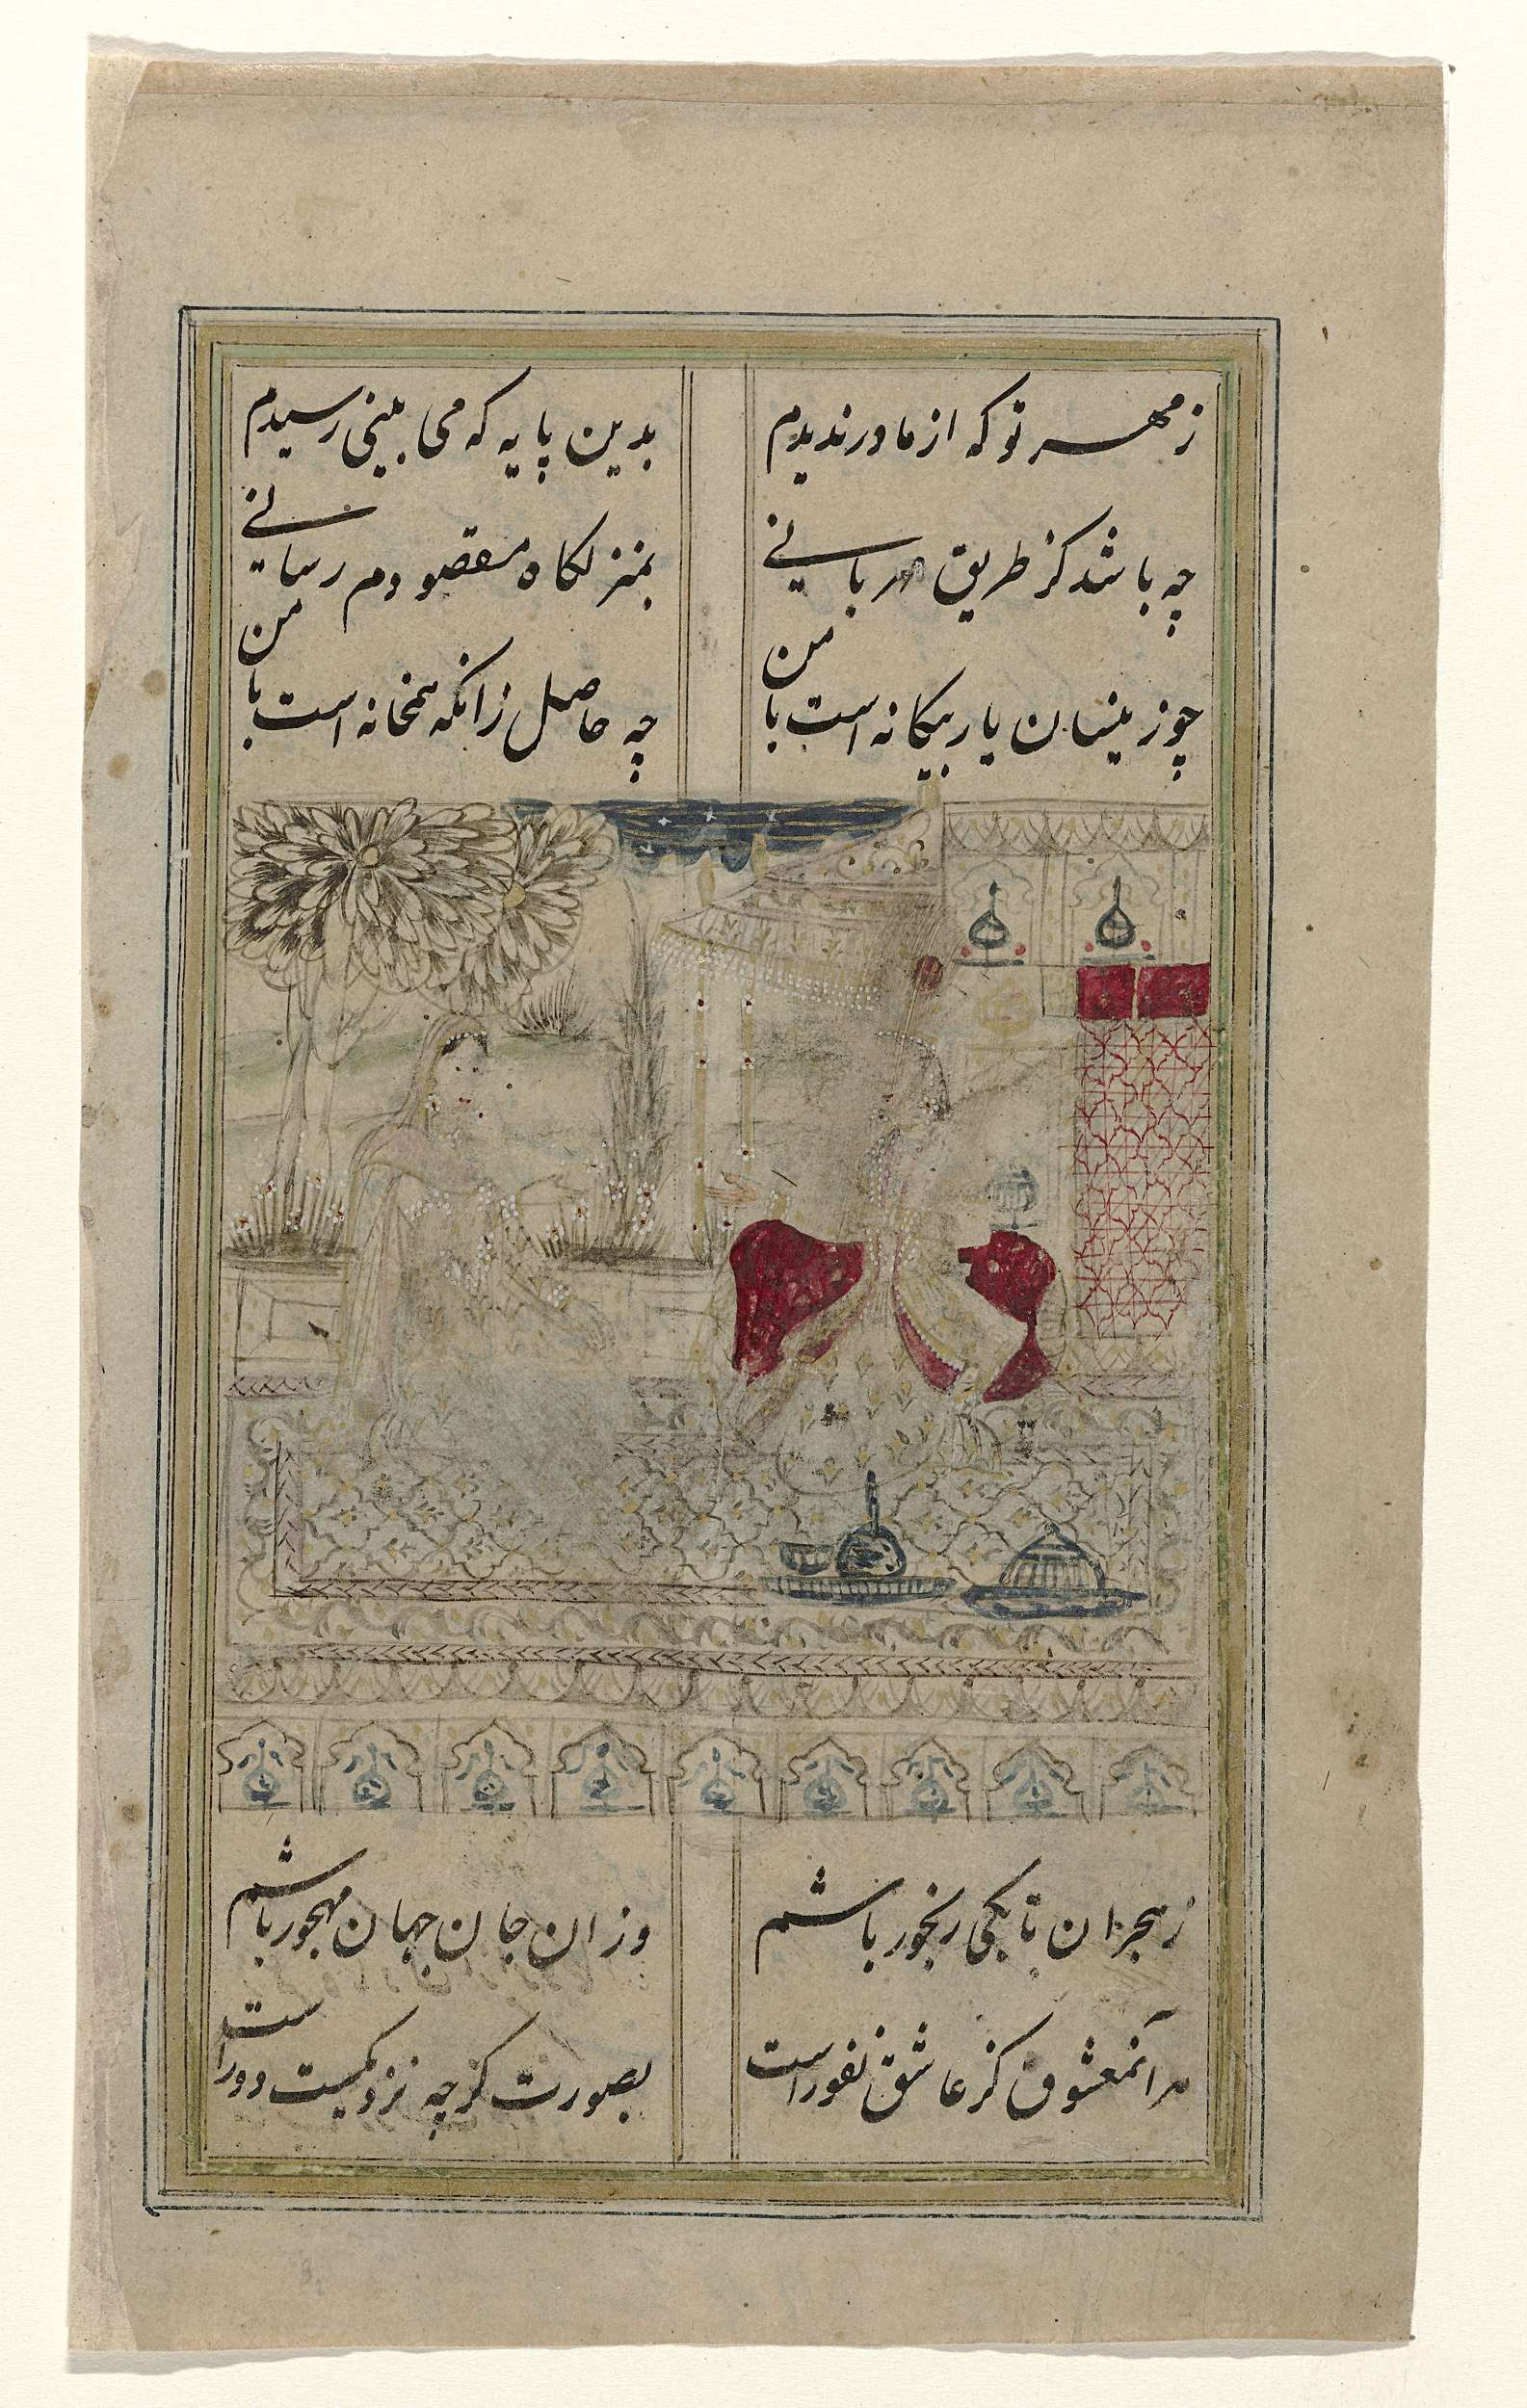 ز مهر تو که از مادر ندیدم
بدین پایه که می بینی رسیدم
چه باشد کز طریق مهربانی
بمنزلگاه مقصودم رسانی
چو زینسان یار بیگانه است با من
چه حاصل زانکه همخانه است با من
ز هجران تا بکی رنجور باشم
وزان جان جهان مهجور باشم
مر آنمعشوق کز عاشق نفور است
بصورت گرچه نزدیکست دور است